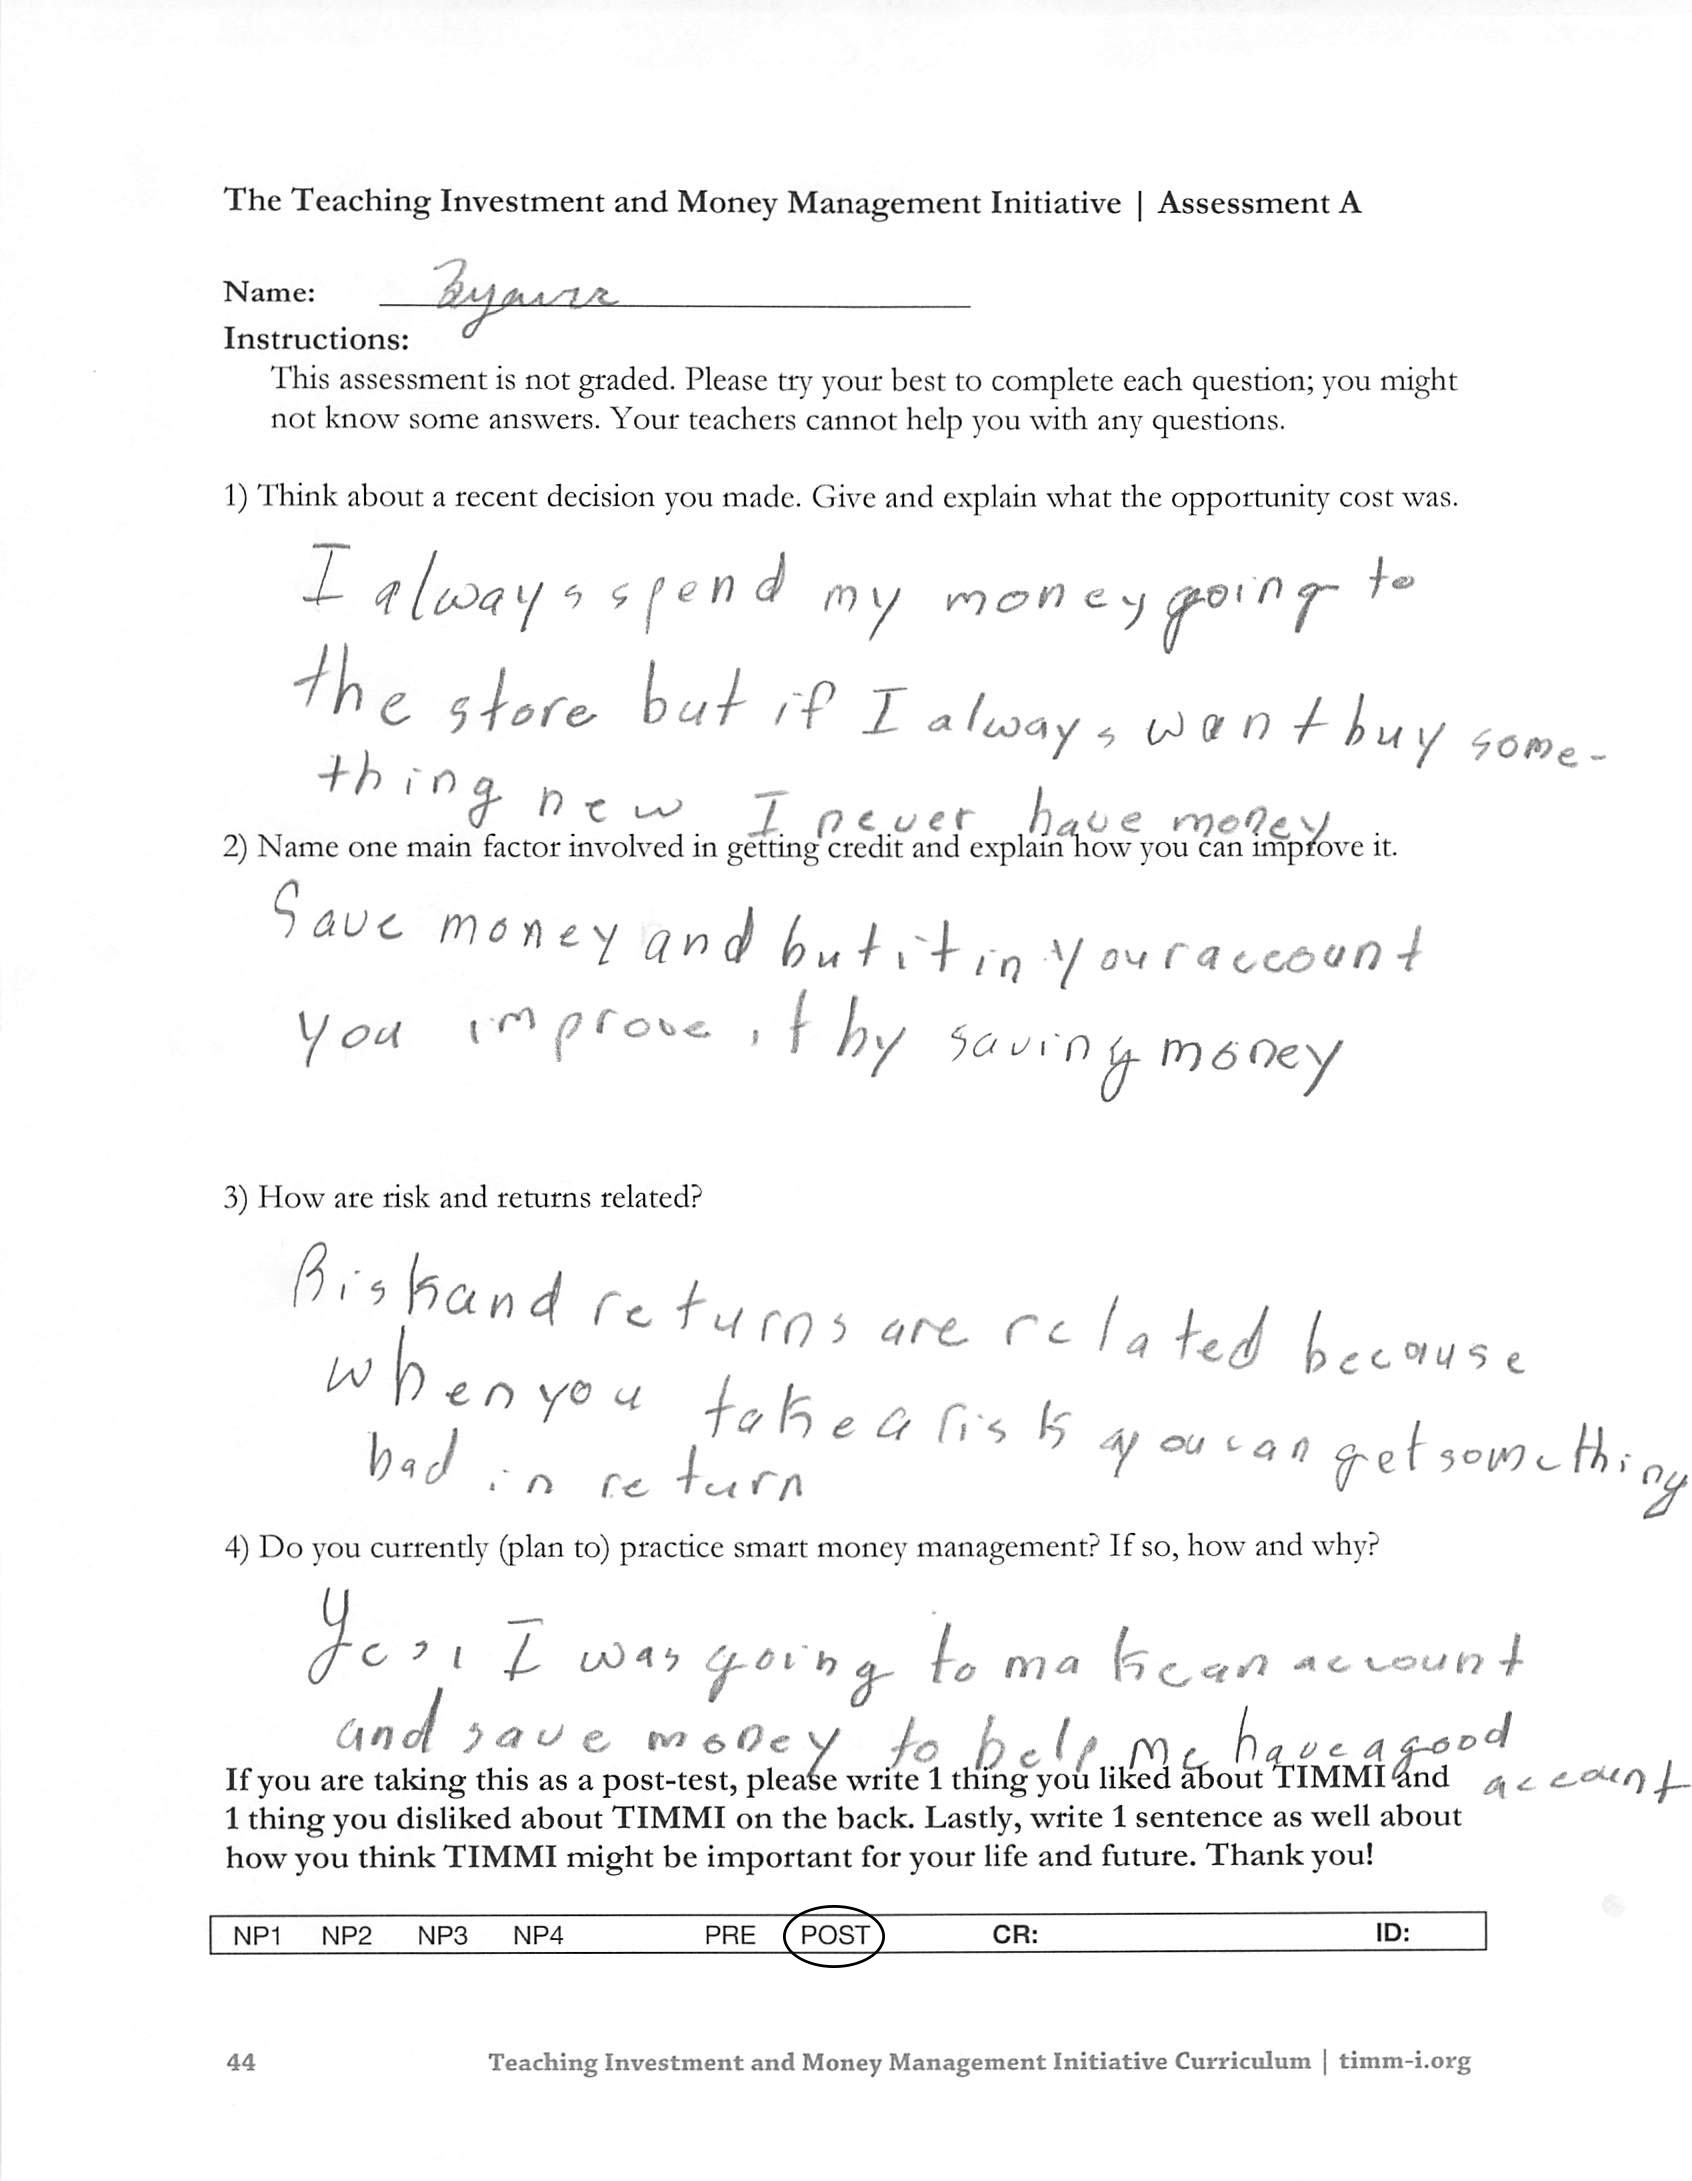 The Teaching Investment and Money Management Initiative | Assessment A
Name:
Instructions:
This assessment is not graded. Please try your best to complete each question; you might
not know some answers. Your teachers cannot help you with any questions.
1) Think about a recent decision you made. Give and explain what the opportunity cost was.
I always spend my money going to
the store but if I always want buy some-
thing new I never have money
2) Name one main factor involved in getting credit and explain how you can improve it.
Save money and but it in your account
you improve it by saving money
3) How are risk and returns related?
Risk and returns are related because
when you take a risk you can get something
bad in return
4) Do you currently (plan to) practice smart money management? If so, how and why?
Yes, I was going to make an account
and save money to help me have a good
account
If you are taking this as a post-test, please write 1 thing you liked about TIMMI and
1 thing you disliked about TIMMI on the back. Lastly, write 1 sentence as well about
how you think TIMMI might be important for your life and future. Thank you!
NP1 NP2 NP3 NP4 PRE POST CR: ID:
44 Teaching Investment and Money Management Initiative Curriculum | timm-i.org